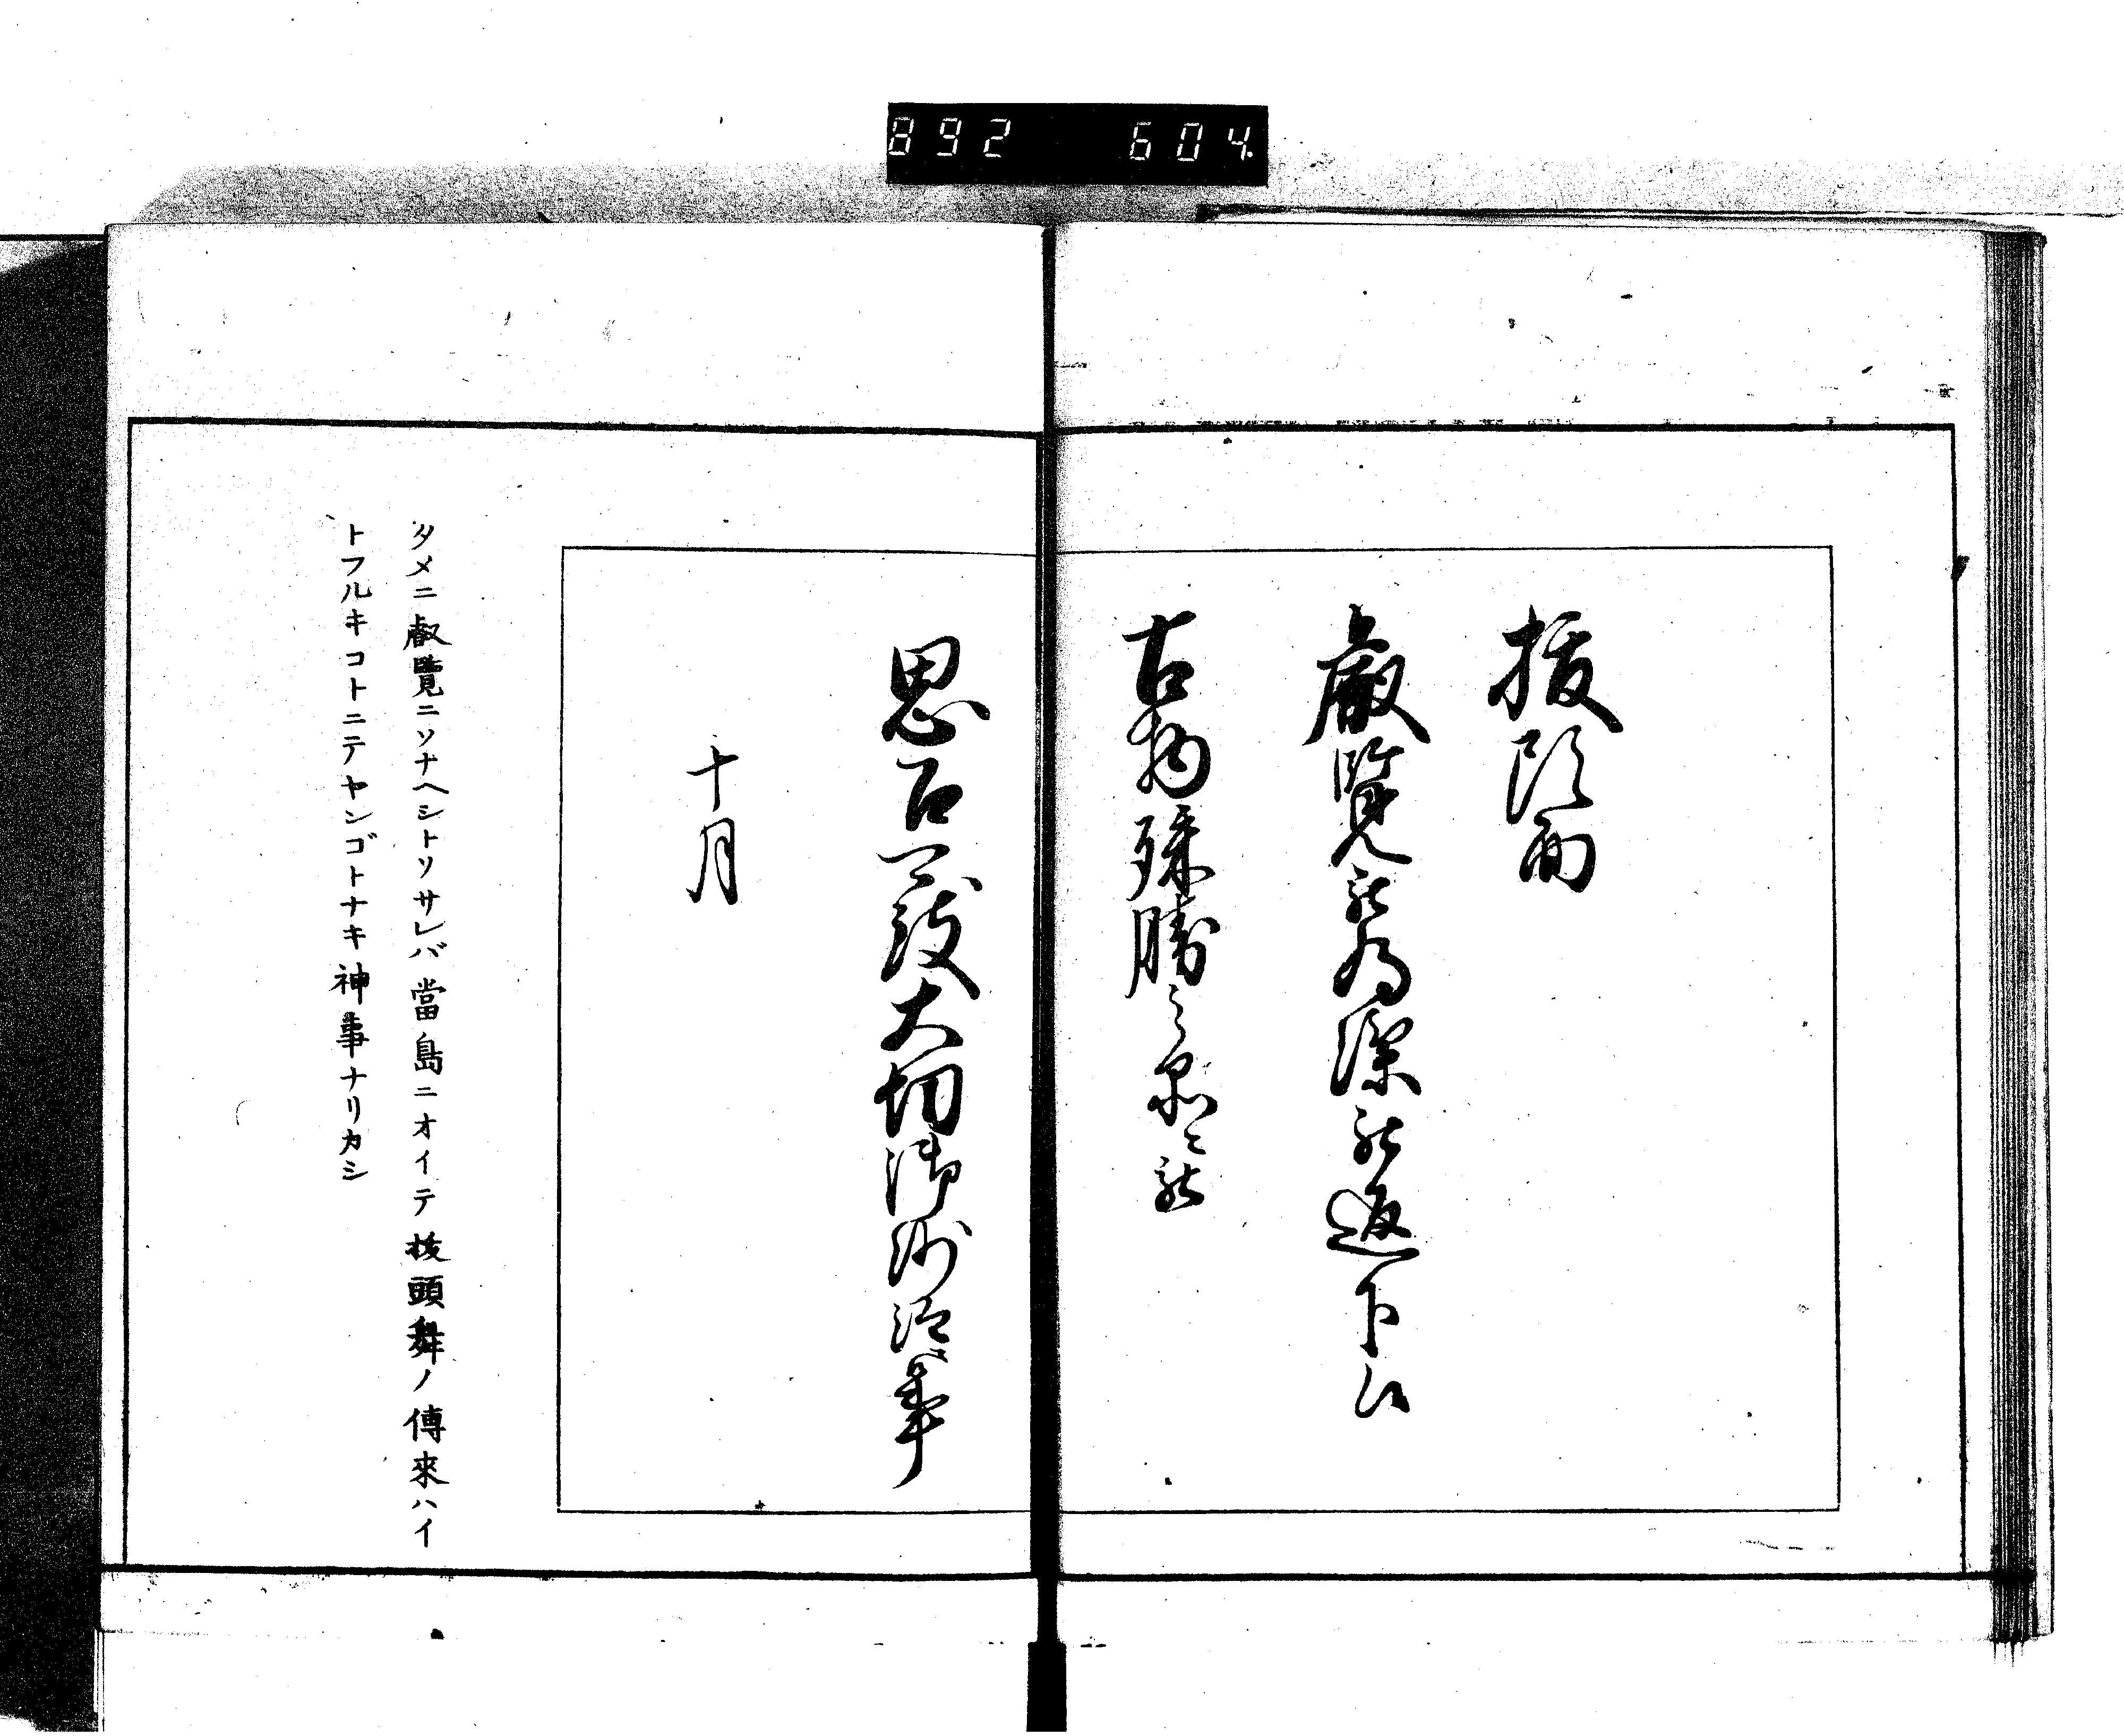 892 604
抜頭面
叡覧被為濟被返下候
古物殊勝之品ニ被
思召必致大切
十月
タメニ叡覽ニソナヘシトソサレバ當島ニオイテ抜頭舞ノ傳來ハイ
トフルキコトニテヤンゴトナキ神事ナリカシ